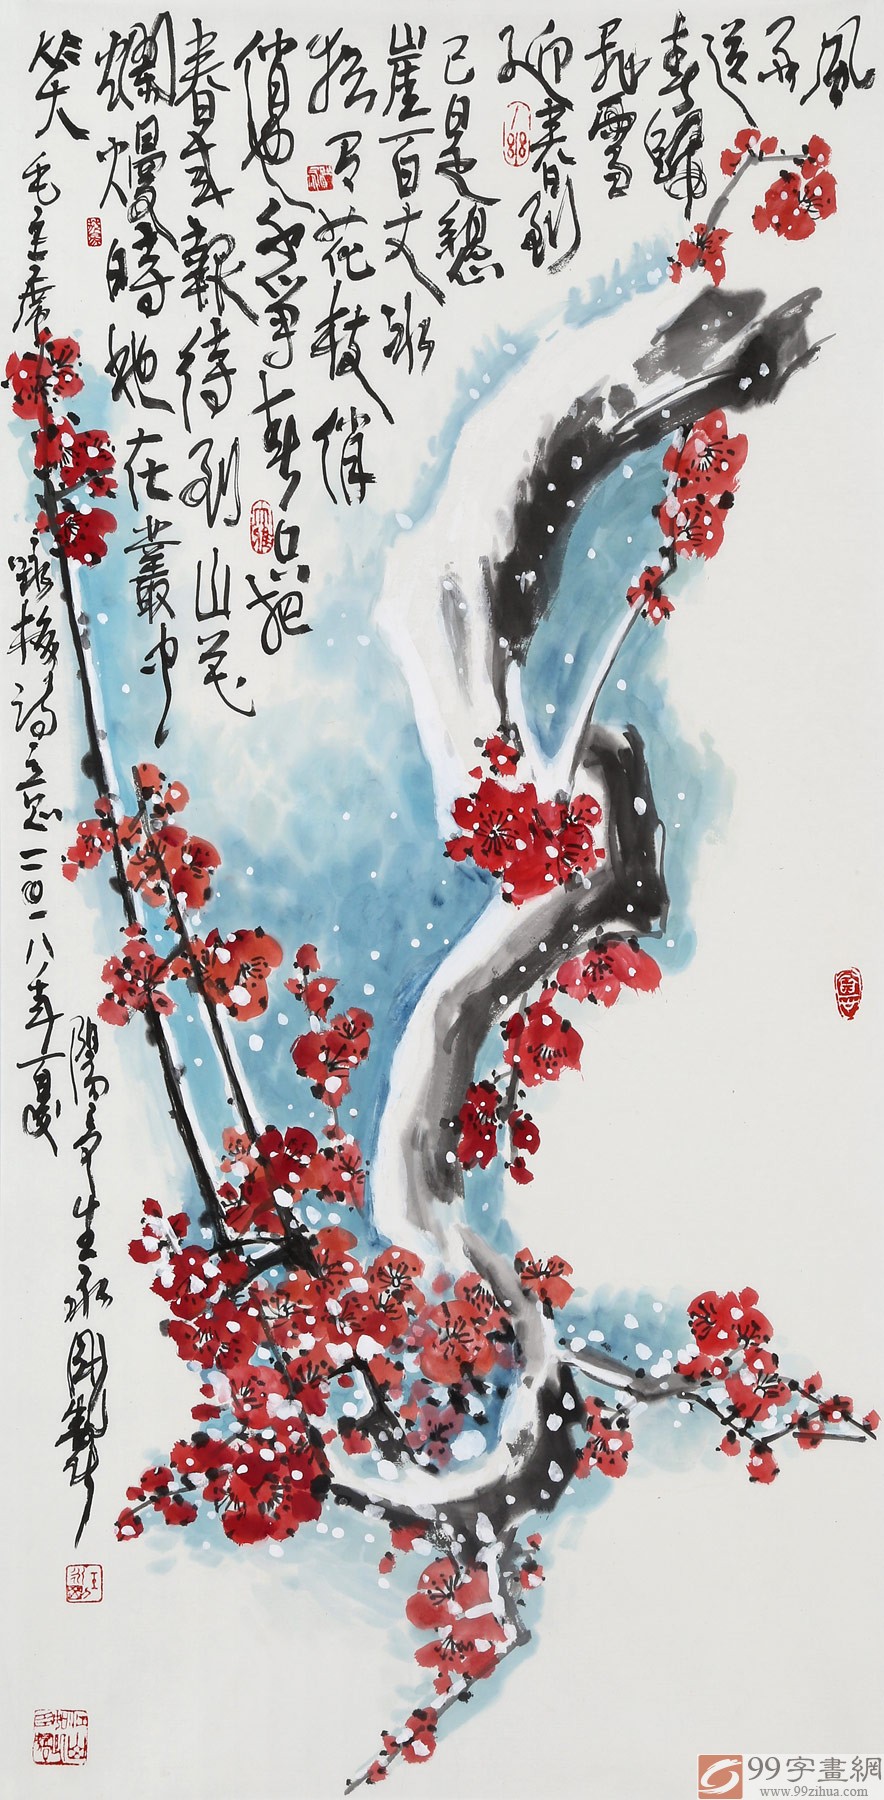 風
雨
送
春歸
飛雪
迎春到
已是懸
崖百丈冰
猶有花枝俏
俏也不爭春只把
春來報待到山花
爛熳時她在叢中
笑 毛主席咏梅詩意二〇一八年夏
99字畫網
www.99zihua.com